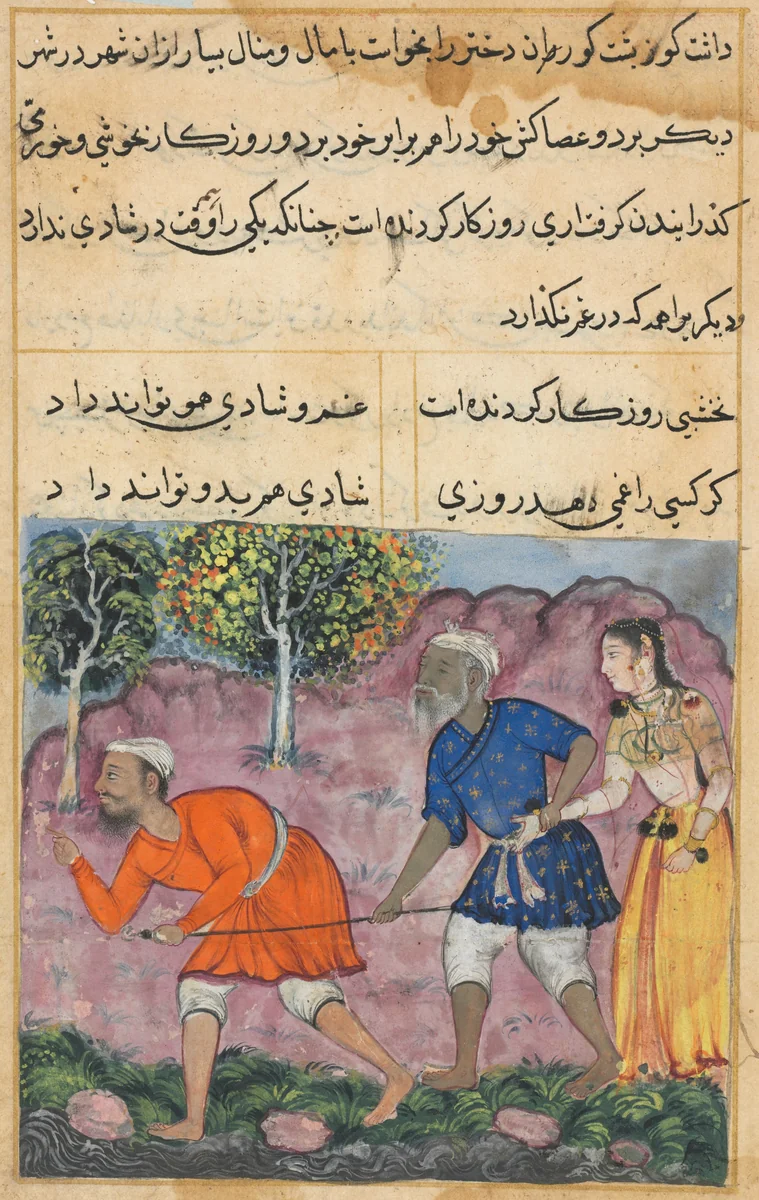 داشت کوز پشت کور آن دختر را بخواست با مال و منال بسیار ازان شهر در شهر
دیکر برد و عصاکش خود را هم برابر خود برد و روزکار بخوشی و خورمی
کذرانیدن کرفت اری روزکار کردنده است چنانکه یکی را همه وقت در شادی ندارد
و دیکریرا همه که در غم نکذارد
نخشبی روزکار کردنده است
غم و شادی هو تواند داد
کر کسی را غمی دهد روزی
شادی هم بدو تواند داد